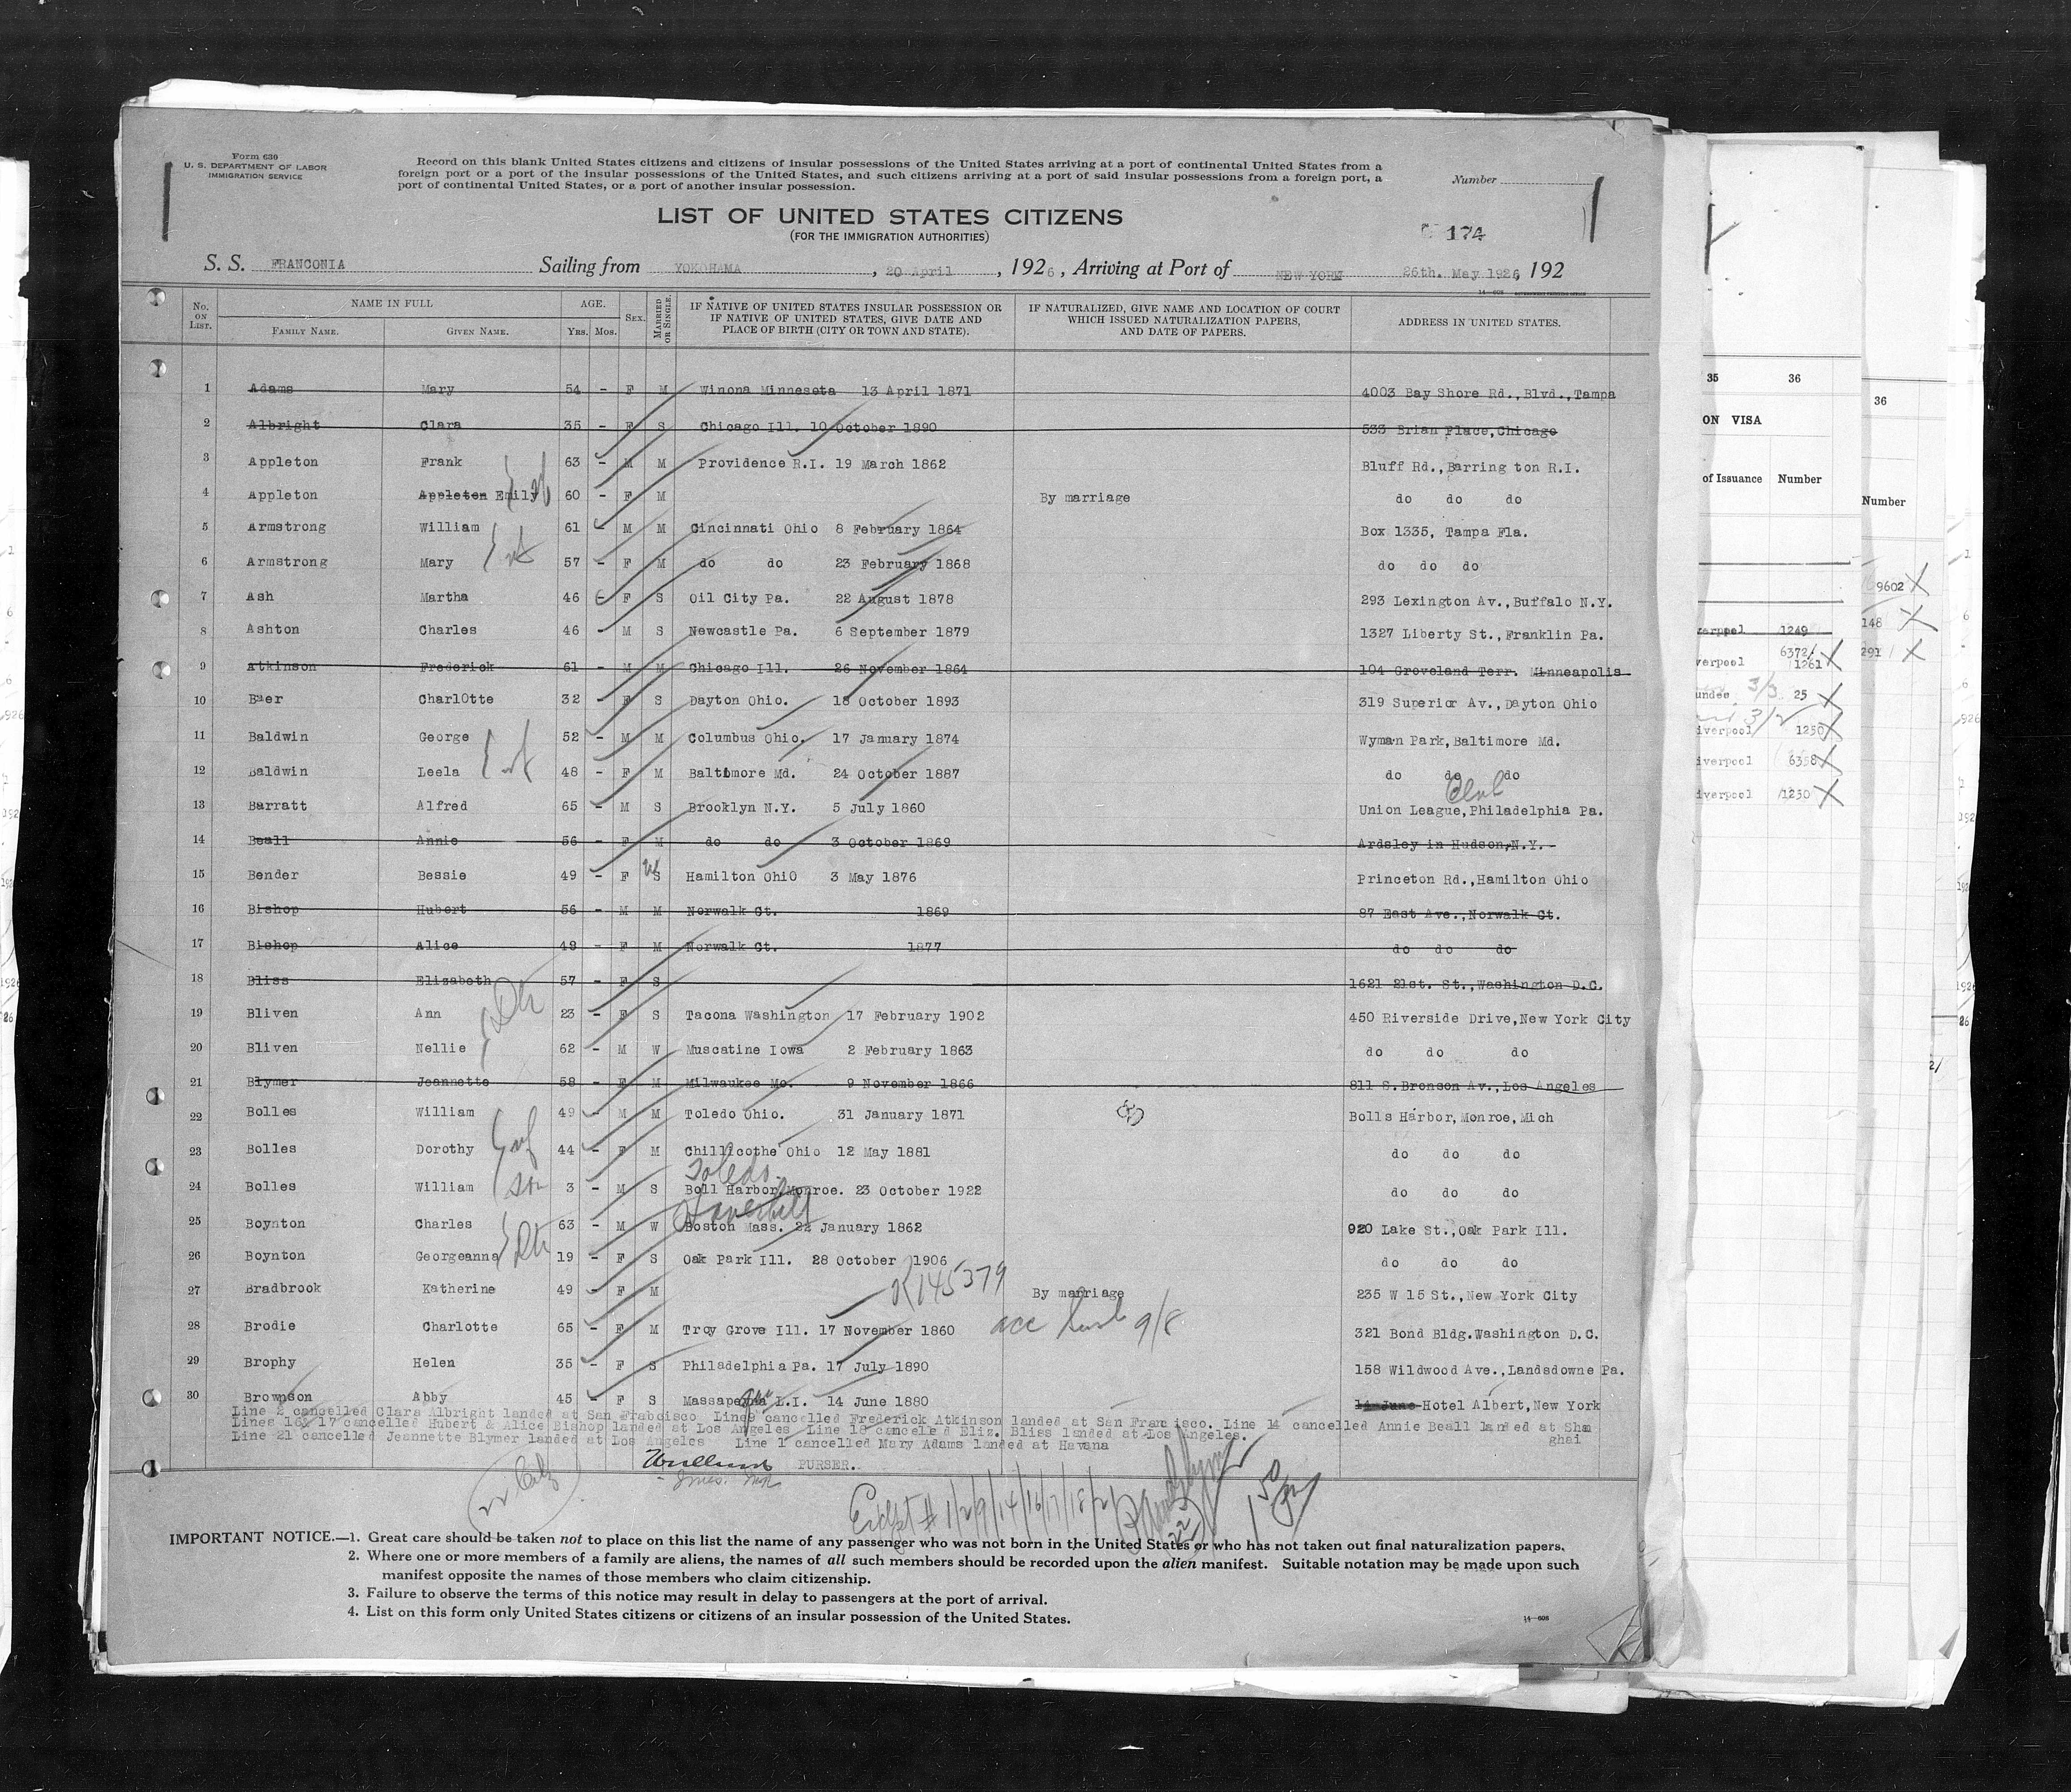 Form 630
U. S. DEPARTMENT OF LABOR
IMMIGRATION SERVICE
Record on this blank United States citizens and citizens of insular possessions of the United States arriving at a port of continental United States from a
foreign port or a port of the insular possessions of the United States, and such citizens arriving at a port of said insular possessions from a foreign port, a
port of continental United States, or a port of another insular possession.
Number
LIST OF UNITED STATES CITIZENS
(FOR THE IMMIGRATION AUTHORITIES)
174
S. S. FRANCONIA Sailing from YOKOHAMA, 20 April, 1926, Arriving at Port of NEW YORK 26th. May 1926, 192
No. ON LIST. NAME IN FULL FAMILY NAME. GIVEN NAME. AGE. Yrs. Mos. SEX. MARRIED OR SINGLE. IF NATIVE OF UNITED STATES INSULAR POSSESSION OR IF NATIVE OF UNITED STATES, GIVE DATE AND PLACE OF BIRTH (CITY OR TOWN AND STATE). IF NATURALIZED, GIVE NAME AND LOCATION OF COURT WHICH ISSUED NATURALIZATION PAPERS, AND DATE OF PAPERS. ADDRESS IN UNITED STATES.
1 Adams Mary 54 - F M Winona Minnesota 13 April 1871 4003 Bay Shore Rd., Blvd., Tampa
2 Albright Clara 35 - F S Chicago Ill. 10 October 1890 533 Brian Place, Chicago
3 Appleton Frank 63 - M M Providence R.I. 19 March 1862 Bluff Rd., Barring ton R.I.
4 Appleton Appleton Emily 60 - F M By marriage do do do
5 Armstrong William 61 - M M Cincinnati Ohio 8 February 1864 Box 1335, Tampa Fla.
6 Armstrong Mary 57 - F M do do 23 February 1868 do do do
7 Ash Martha 46 - F S Oil City Pa. 22 August 1878 293 Lexington Av., Buffalo N.Y.
8 Ashton Charles 46 - M S Newcastle Pa. 6 September 1879 1327 Liberty St., Franklin Pa.
9 Atkinson Frederick 61 - M M Chicago Ill. 26 November 1864 104 Groveland Terr. Minneapolis
10 Baer CharlOtte 32 - F S Dayton Ohio. 18 October 1893 319 Superior Av., Dayton Ohio
11 Baldwin George 52 - M M Columbus Ohio. 17 January 1874 Wyman Park, Baltimore Md.
12 Baldwin Leela 48 - F M Baltimore Md. 24 October 1887 do do do
Club
13 Barratt Alfred 65 - M S Brooklyn N.Y. 5 July 1860 Union League, Philadelphia Pa.
14 Beall Annie 56 - F M do do 3 October 1869 Ardsley in Hudson, N.Y.
15 Bender Bessie 49 - F S Hamilton OhiO 3 May 1876 Princeton Rd., Hamilton Ohio
16 Bishop Hubert 56 - M M Norwalk Ct. 1869 87 East Ave., Norwalk Ct.
17 Bishop Alice 48 - F M Norwalk Ct. 1877 do do do
18 Bliss Elizabeth 57 - F S 1621 21st. St., Washington D.C.
19 Bliven Ann 23 - F S Tacona Washington 17 February 1902 450 Riverside Drive, New York City
20 Bliven Nellie 62 - M W Muscatine Iowa 2 February 1863 do do do
21 Blymer Jeannette 58 - F M Milwaukee Mo. 9 November 1866 811 S. Bronson Av., Los Angeles
22 Bolles William 49 - M M Toledo Ohio. 31 January 1871 Bolls Harbor, Monroe, Mich
23 Bolles Dorothy 44 - F M Chillicothe Ohio 12 May 1881 do do do
Toledo
24 Bolles William son 3 - M S Boll Harbor, Monroe. 23 October 1922 do do do
Haverhill
25 Boynton Charles 63 - M W Boston Mass. 22 January 1862 920 Lake St., Oak Park Ill.
26 Boynton Georgeanna 19 - F S Oak Park Ill. 28 October 1906 do do do
27 Bradbrook Katherine 49 - F M R145379 By marriage 235 W 15 St., New York City
28 Brodie Charlotte 65 - F M Troy Grove Ill. 17 November 1860 acc husb 9/8 321 Bond Bldg. Washington D.C.
29 Brophy Helen 35 - F S Philadelphia Pa. 17 July 1890 158 Wildwood Ave., Landsdowne Pa.
30 Brownson Abby 45 - F S L.I. 14 June 1880 14 June Hotel Albert, New York
Line 2 cancelled Clara Albright landed at San Frabcisco Line9 cancelled Frederick Atkinson landed at San Francisco. Line 14 cancelled Annie Beall landed at Sha
Lines 16& 17 cancelled Hubert & Alice Bishop landed at Los Angeles Line 18 cancelled Eliz. Bliss landed at Los Angeles. ghai
Line 21 cancelled Jeannette Blymer landed at Los Angeles Line 1 cancelled Mary Adams landed at Havana
PURSER.
1/2/9/14/16/17/18/21
IMPORTANT NOTICE.—1. Great care should be taken not to place on this list the name of any passenger who was not born in the United States or who has not taken out final naturalization papers.
2. Where one or more members of a family are aliens, the names of all such members should be recorded upon the alien manifest. Suitable notation may be made upon such
manifest opposite the names of those members who claim citizenship.
3. Failure to observe the terms of this notice may result in delay to passengers at the port of arrival.
4. List on this form only United States citizens or citizens of an insular possession of the United States.
14—608
35 36
ON VISA
of Issuance Number
1249
verpool 6372/1261
undee 3/3 25
iverpool 1250
iverpool 6358
iverpool 1230
36
Number
9602
148
291